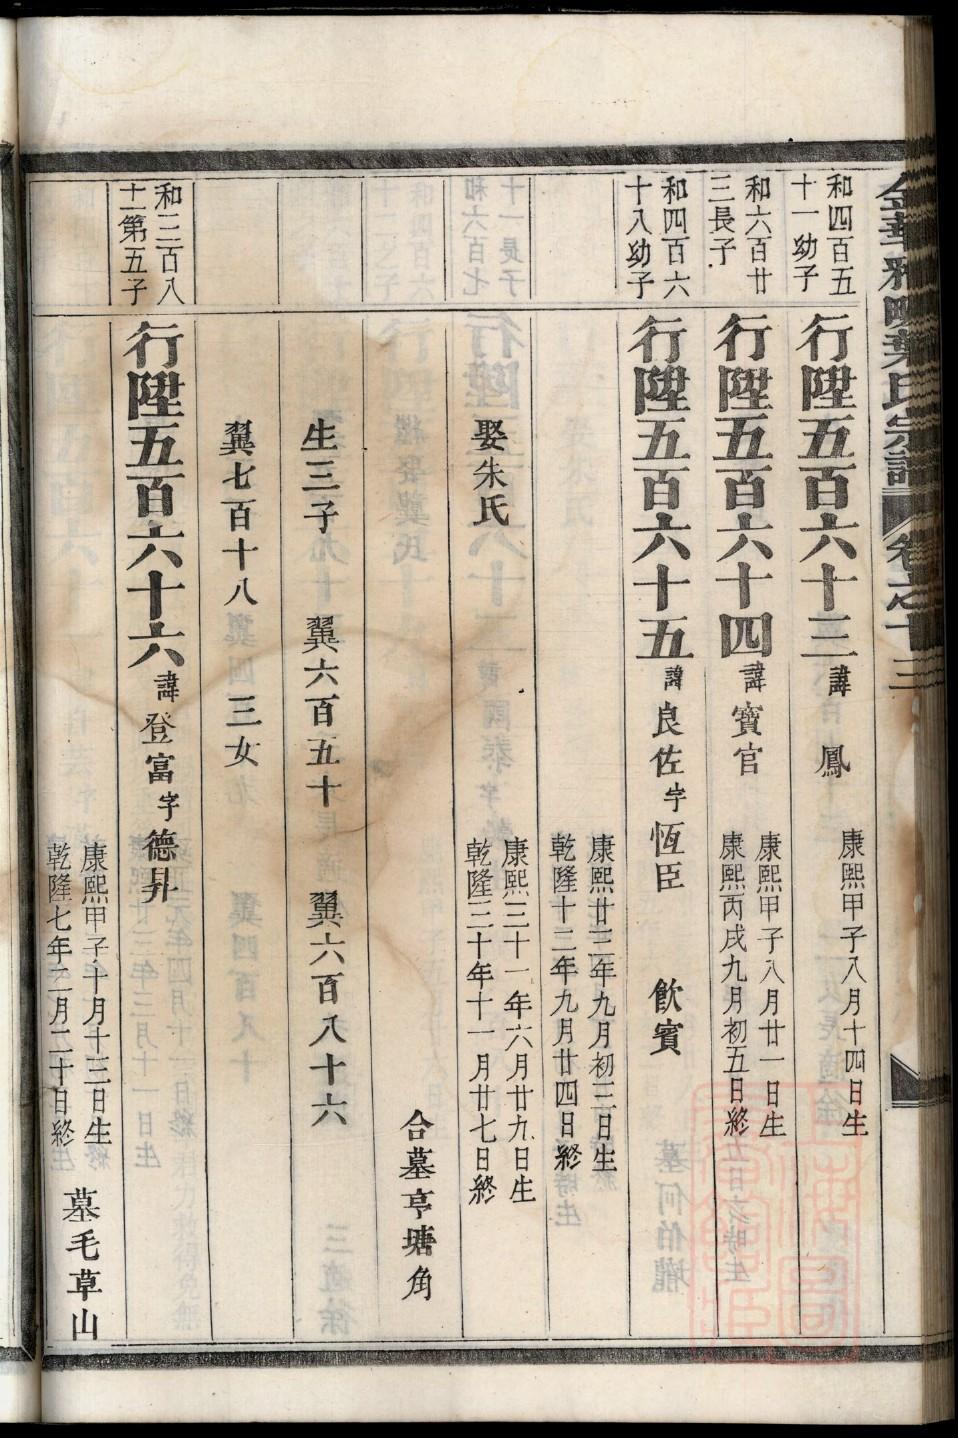 金華雅畈葉氏宗譜 卷之十三
和四百五
十一幼子
行陞五百六十三諱鳳
康熙甲子八月十四日生
和六百廿
三長子
行陞五百六十四諱寶官
康熙甲子八月廿一日生
康熙丙戌九月初五日終
和四百六
十八幼子
行陞五百六十五諱良佐字恆臣 飲賓
康熙廿三年九月初三日生
乾隆十二年九月廿四日終
娶朱氏
康熙三十一年六月廿九日生
乾隆三十年十一月廿七日終
合墓亭塘角
生三子 翼六百五十 翼六百八十六
翼七百十八 三女
和三百八
十二第五子
行陞五百六十六諱登富字德昇
康熙甲子十月十三日生
乾隆七年二月二十日終
墓毛草山